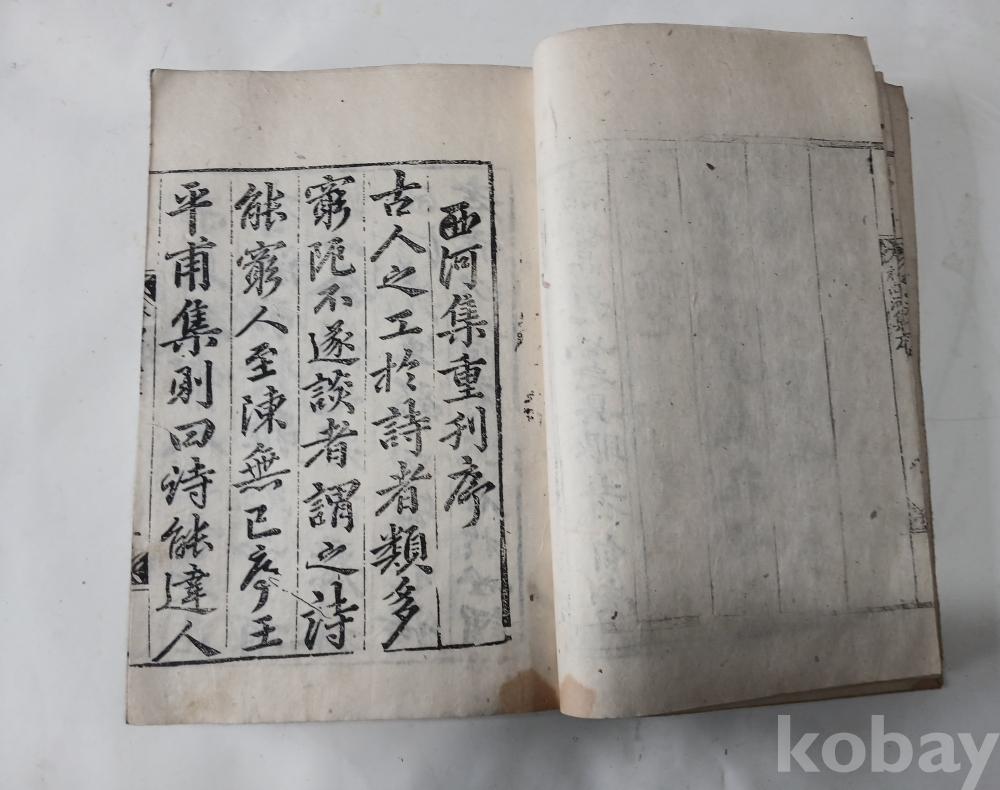 西河集重刋序
古人之工於詩者類多
窮阨不遂談者謂之詩
能窮人至陳無已序王
平甫集則曰詩能達人
kobay